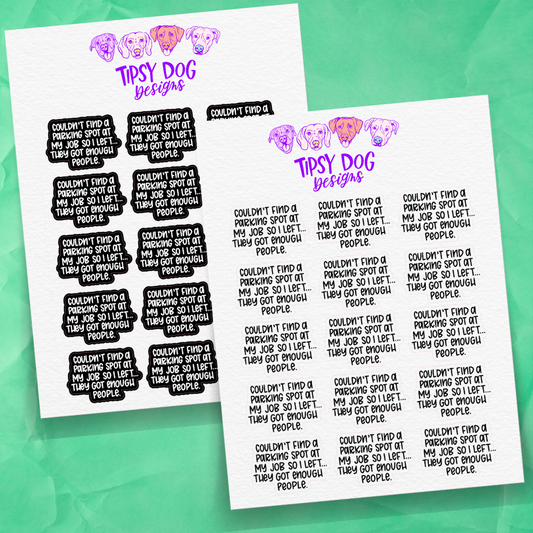 TIPSY DOG
Designs
COULDN'T FIND A
PARKING SPOT AT
MY JOB SO I LEFT...
THEY GOT ENOUGH
PEOPLE.
COULDN'T FIND A
PARKING SPOT AT
MY JOB SO I LEFT...
THEY GOT ENOUGH
PEOPLE.
COULDN'T FIND A
COULDN'T FIND A
PARKING SPOT AT
MY JOB SO I LEFT...
THEY GOT ENOUGH
PEOPLE.
COULDN'T FIND A
PARKING SPOT AT
MY JOB SO I LEFT...
THEY GOT ENOUGH
PEOPLE.
COULDN'T FIND A
PARKING SPOT AT
MY JOB SO I LEFT...
THEY GOT ENOUGH
PEOPLE.
COULDN'T FIND A
PARKING SPOT AT
MY JOB SO I LEFT...
THEY GOT ENOUGH
PEOPLE.
COULDN'T FIND A
PARKING SPOT AT
MY JOB SO I LEFT...
THEY GOT ENOUGH
PEOPLE.
COULDN'T FIND A
PARKING SPOT AT
MY JOB SO I LEFT...
THEY GOT ENOUGH
PEOPLE.
COULDN'T FIND A
PARKING SPOT AT
MY JOB SO I LEFT...
THEY GOT ENOUGH
PEOPLE.
COULDN'T FIND A
PARKING SPOT AT
MY JOB SO I LEFT...
THEY GOT ENOUGH
PEOPLE.
TIPSY DOG
Designs
COULDN'T FIND A
PARKING SPOT AT
MY JOB SO I LEFT...
THEY GOT ENOUGH
PEOPLE.
COULDN'T FIND A
PARKING SPOT AT
MY JOB SO I LEFT...
THEY GOT ENOUGH
PEOPLE.
COULDN'T FIND A
PARKING SPOT AT
MY JOB SO I LEFT...
THEY GOT ENOUGH
PEOPLE.
COULDN'T FIND A
PARKING SPOT AT
MY JOB SO I LEFT...
THEY GOT ENOUGH
PEOPLE.
COULDN'T FIND A
PARKING SPOT AT
MY JOB SO I LEFT...
THEY GOT ENOUGH
PEOPLE.
COULDN'T FIND A
PARKING SPOT AT
MY JOB SO I LEFT...
THEY GOT ENOUGH
PEOPLE.
COULDN'T FIND A
PARKING SPOT AT
MY JOB SO I LEFT...
THEY GOT ENOUGH
PEOPLE.
COULDN'T FIND A
PARKING SPOT AT
MY JOB SO I LEFT...
THEY GOT ENOUGH
PEOPLE.
COULDN'T FIND A
PARKING SPOT AT
MY JOB SO I LEFT...
THEY GOT ENOUGH
PEOPLE.
COULDN'T FIND A
PARKING SPOT AT
MY JOB SO I LEFT...
THEY GOT ENOUGH
PEOPLE.
COULDN'T FIND A
PARKING SPOT AT
MY JOB SO I LEFT...
THEY GOT ENOUGH
PEOPLE.
COULDN'T FIND A
PARKING SPOT AT
MY JOB SO I LEFT...
THEY GOT ENOUGH
PEOPLE.
COULDN'T FIND A
PARKING SPOT AT
MY JOB SO I LEFT...
THEY GOT ENOUGH
PEOPLE.
COULDN'T FIND A
PARKING SPOT AT
MY JOB SO I LEFT...
THEY GOT ENOUGH
PEOPLE.
COULDN'T FIND A
PARKING SPOT AT
MY JOB SO I LEFT...
THEY GOT ENOUGH
PEOPLE.